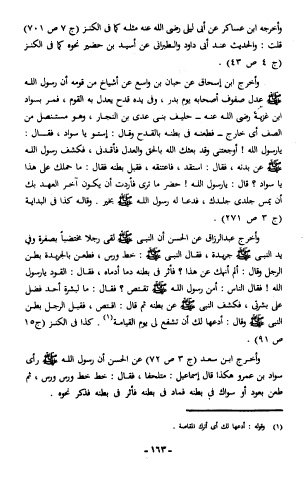 وأخرجه ابن عساكر عن أبى ليلى رضى الله عنه مثله كما فى الكنز (ج ٧ ص ٧٠١)
قلت : والحديث عند أبى داود والطبرانى عن أسيد بن حضير نحوه كما فى الكنز
(ج ٤ ص ٤٣) .
وأخرج ابن إسحاق عن حبان بن واسع عن أشياخ من قومه أن رسول الله
ﷺ عدل صفوف أصحابه يوم بدر ، وفى يده قدح يعدل به القوم ، فمر بسواد
ابن غزية رضى الله عنه – حليف بنى عدى بن النجار ، وهو مستنصل من
الصف أى خارج – فطعنه فى بطنه بالقدح وقال : إستو يا سواد ، فقال :
يارسول الله ! أوجعتنى وقد بعثك الله بالحق والعدل فأقدنى ، فكشف رسول الله
ﷺ عن بدنه ، فقال : استقد ، فاعتنقه ، فقبل بطنه فقال : ما حملك على هذا
يا سواد ؟ قال : يارسول الله ! حضر ما ترى فأردت أن يكون آخر العهد بك
أن يمس جلدى جلدك ، فدعا له رسول الله ﷺ بخير . وقاله كذا فى البداية
(ج ٣ ص ٢٧١) .
وأخرج عبدالرزاق عن الحسن أن النبى ﷺ لقى رجلا مختضباً بصفرة وفى
يد النبى ﷺ جريدة ، فقال النبى ﷺ : خط ورس ، فطعن بالجريدة بطن
الرجل وقال : ألم أنهك عن هذا ؟ فأثر فى بطنه دما أدماه ، فقال : القود يارسول
الله ! فقال الناس : أمن رسول الله ﷺ تقتص ؟ فقال : ما لبشرة أحد فضل
على بشرتى ، فكشف النبى ﷺ عن بطنه ثم قال : اقتص ، فقبل الرجل بطن
النبى ﷺ وقال : أدعها لك أن تشفع لى يوم القيامة(١) . كذا فى الكنز (ج١٥
ص ٩١) .
وأخرج ابن سعد (ج ٣ ص ٧٢) عن الحسن أن رسول الله ﷺ رأى
سواد بن عمرو هكذا قال إسماعيل : متلحفا ، فقال : خط خط ورس ورس ، ثم
طعن بعود أو سواك فى بطنه فماد فى بطنه فأثر فى بطنه فذكر نحوه .
(١) وقوله : أدعها لك أى أترك المقاصة .
– ١٦٣ –